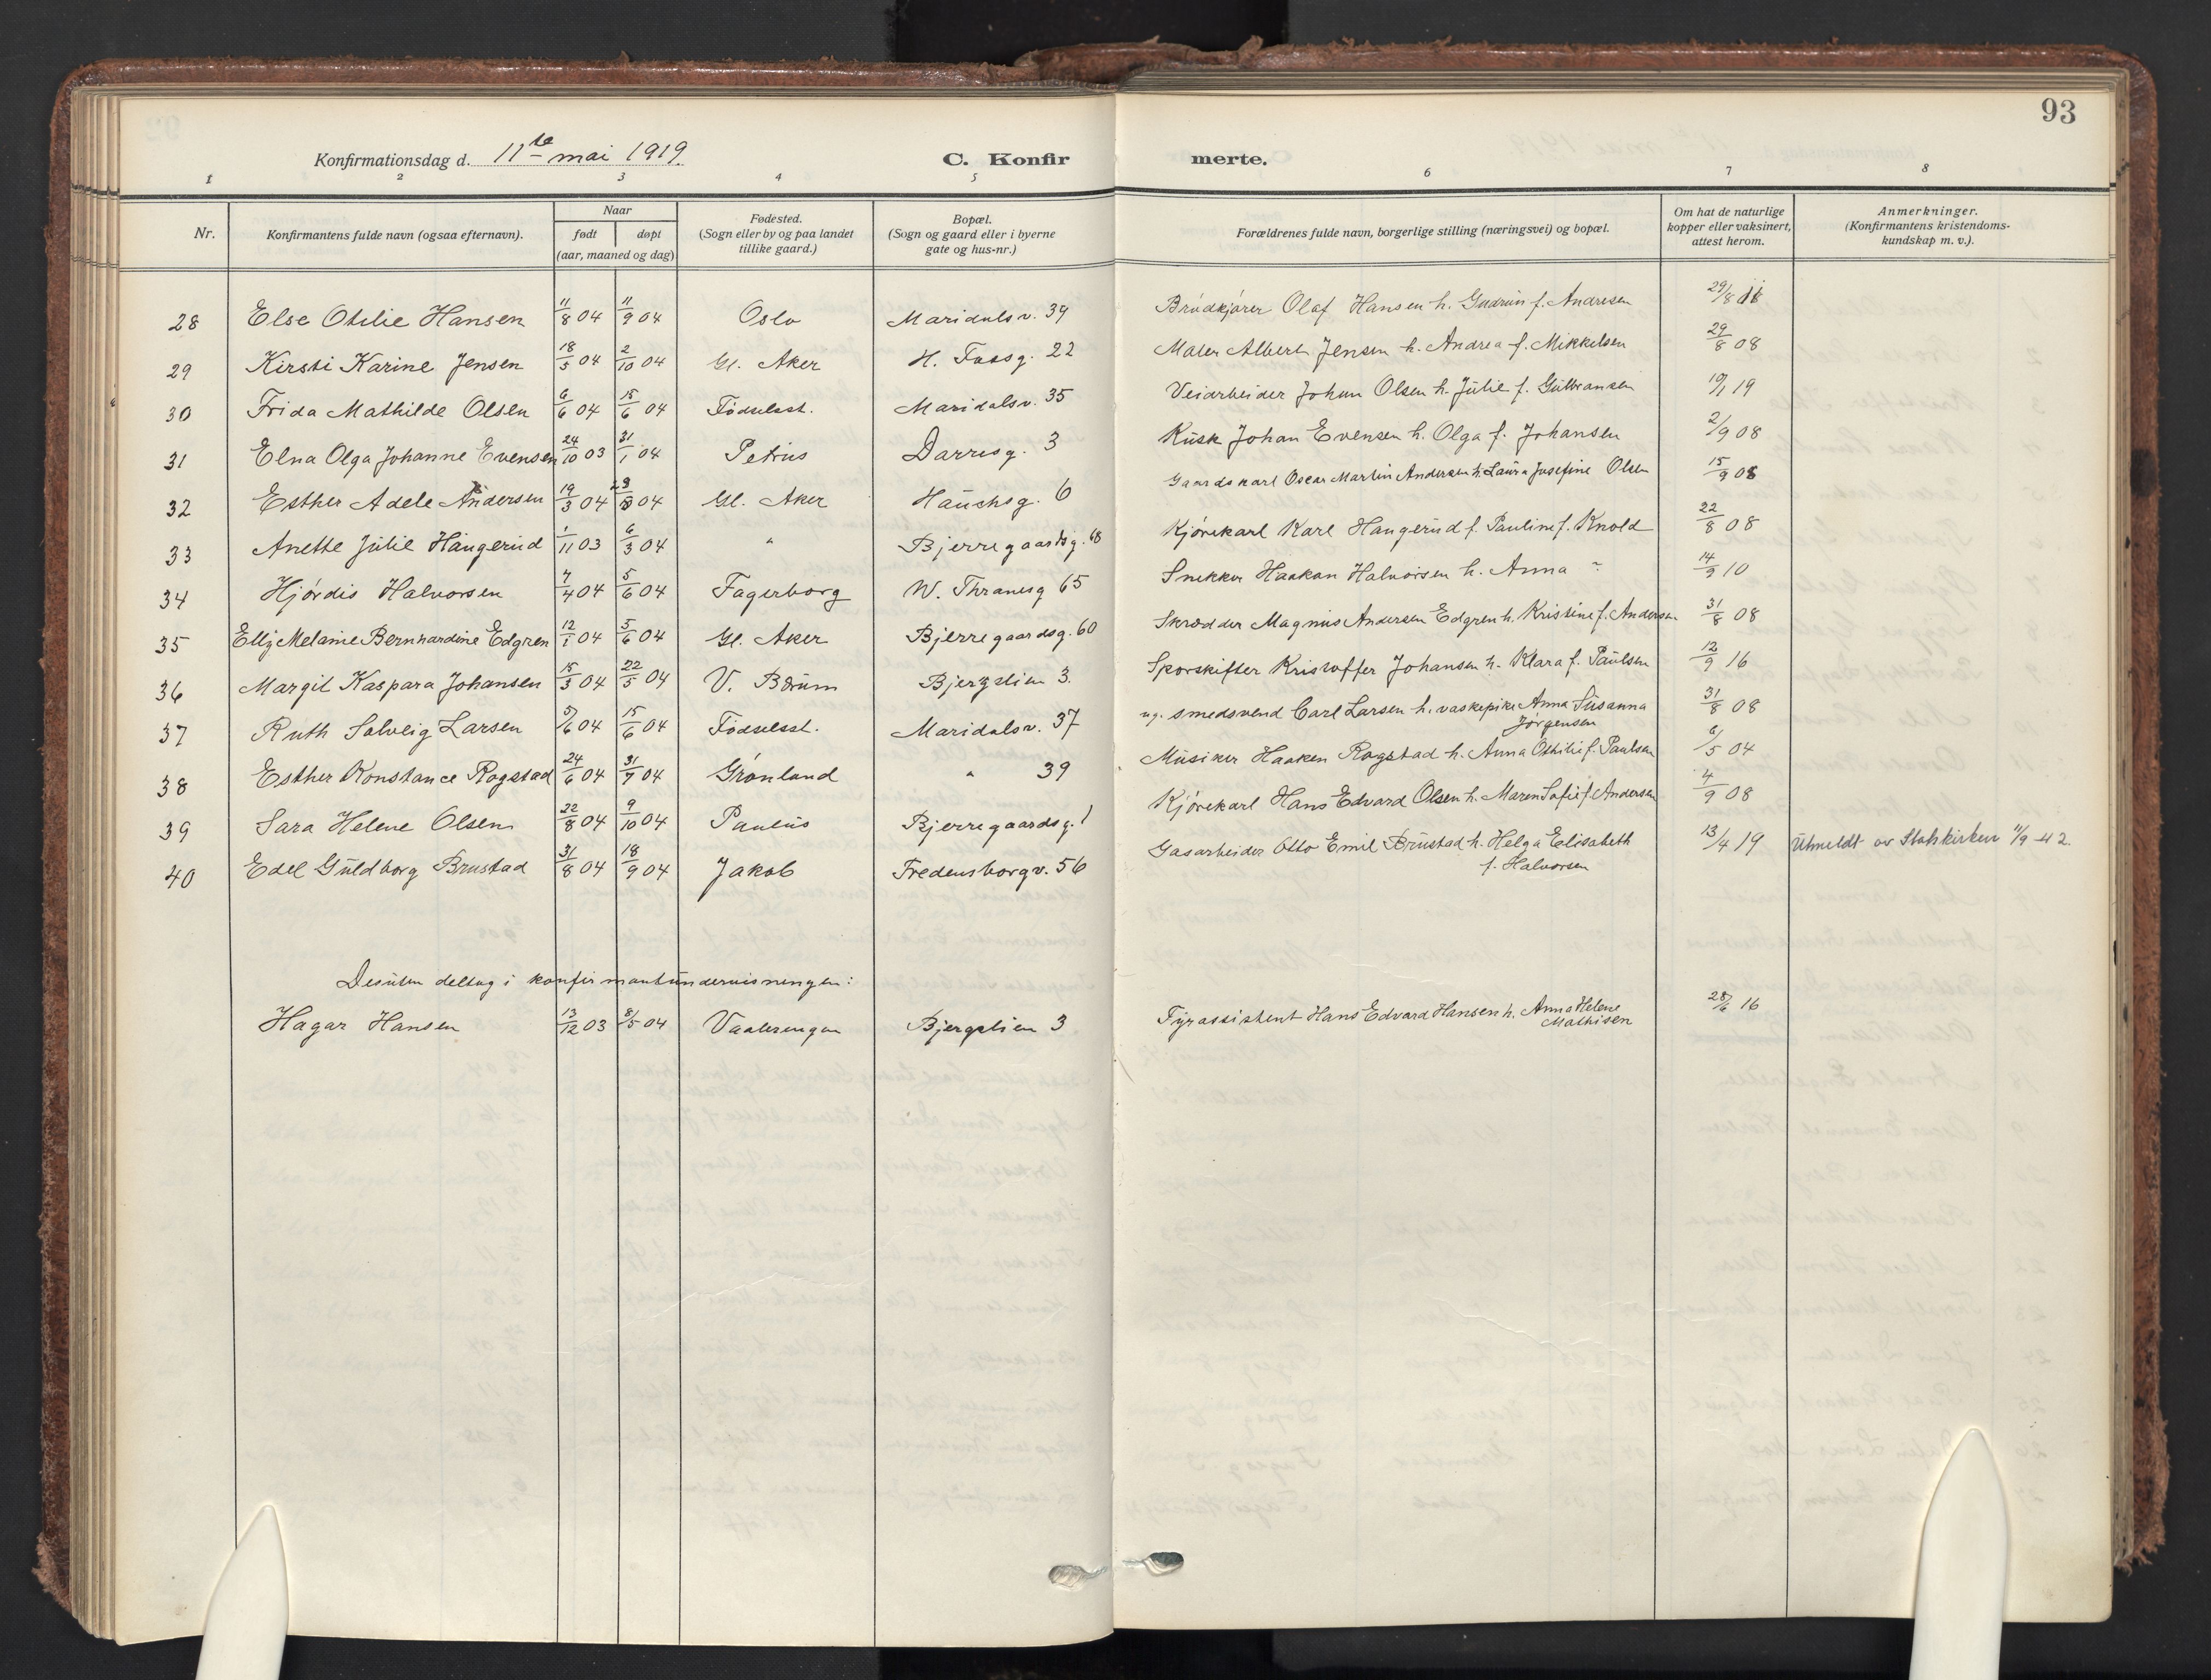 93
Konfirmationsdag d. 11te mai 1919. C. Konfirmerte.
1 2 3 4 5 6 7 8
Nr. Konfirmantens fulde navn (ogsaa efternavn). Naar født døpt (aar, maaned og dag) Fødested. (Sogn eller by og paa landet tillike gaard.) Bopæl. (Sogn og gaard eller i byerne gate og hus-nr.) Forældrenes fulde navn, borgerlige stilling (næringsvei) og bopæl. Om hat de naturlige kopper eller vaksinert, attest herom. Anmerkninger. (Konfirmantens kristendomskundskap m. v.).
28 Else Otilie Hansen 11/8 04 11/9 04 Oslo Maridalsv. 39 Brödkjörer Olaf Hansen h. Gudrun f. Andresen 29/8
29 Kirsti Karine Jensen 18/5 04 2/10 04 Gl. Aker H. Fossg. 22 Maler Albert Jensen h. Andrea f. Mikkelsen 29/8 08
30 Frida Mathilde Olsen 6/6 04 15/6 04 Fødselsst. Maridalsv. 35 Veiarbeider Johan Olsen h. Julie f. Gulbransen 10/1 19
31 Elna Olga Johanne Evensen 24/10 03 31/1 04 Petrus Darresg. 3 Kusk Johan Evensen h. Olga f. Johansen 2/9 08
32 Esther Adele Andersen 19/3 04 04 Gl. Aker Hauchsg. 6 Gaardskarl Oscar Martin Andersen h. Laura Josefine Olsen 15/9 08
33 Anette Julie Haugerud 1/11 03 6/3 04 " Bjerregaardsg. 68 Kjörekarl Karl Haugerud f. Pauline f. Knold 22/8 08
34 Hjördis Halvorsen 7/4 04 5/6 04 Fagerborg W. Thranesg 65 Snekker Haakon Halvorsen h. Anna ~ 14/9 10
35 Elly Melanie Bernhardine Edgren 12/1 04 5/6 04 Gl. Aker Bjerregaardsg. 60 Skrædder Magnus Andersen Edgren h. Kristine f. Andersen 31/8 08
36 Margit Kaspara Johansen 15/3 04 22/5 04 V. Bærum Bjergslien 3. Sporskifter Kristoffer Johansen h. Klara f. Paulsen 12/9 16
37 Ruth Solveig Larsen 5/6 04 15/6 04 Fødselsst. Maridalsv. 37 ug. smedsvend Carl Larsen h. vaskepike Anna Susanna Jörgensen 31/8 08
38 Esther Konstance Rogstad 24/6 04 31/7 04 Grönland " 39 Musiker Haaken Rogstad h. Anna Othilie f. Paulsen 6/5 04
39 Sara Helene Olsen 22/8 04 9/10 04 Paulus Bjerregaardsg. 1 Kjörekarl Hans Edvard Olsen h. Maren Sofie f. Andersen 4/9 08
40 Edel Guldborg Brustad 31/8 04 18/9 04 Jakob Fredensborgv. 56 Gasarbeider Otto Emil Brustad h. Helga Elisabeth f. Halvorsen 13/4 19 Utmeldt av Statskirken /9 -42.
Desuten deltog i konfirmantundervisningen:
Hagar Hansen 13/12 03 8/5 04 Vaalerengen Bjergslien 3 Fyrassistent Hans Edvard Hansen h. Anna Helene Mathisen 28/6 16